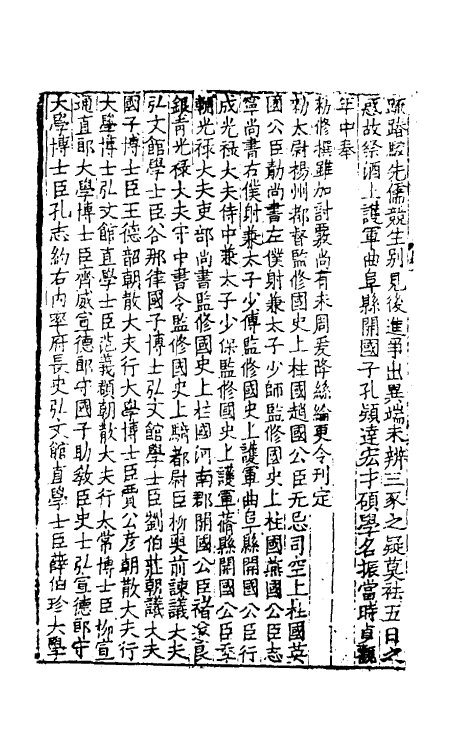 䟽路駁先儒競生别見後進争出異端未辨三豕之疑莫袪五日之
惑故祭酒上護軍曲阜縣開國子孔頴達宏才碩學名振當時貞觀
年中奉
勑修撰雖加討覈尚有未周爰降絲綸更令刊定
勑太尉楊州都督監修國史上柱國趙國公臣无忌司空上柱國英
國公臣勣尚書左僕射兼太子少師監修國史上柱國燕國公臣志
寧尚書右僕射兼太子少傅監修國史上護軍曲阜縣開國公臣行
成光禄大夫侍中兼太子少保監修國史上護軍蓚縣開國公臣季
輔光禄大夫吏部尚書監修國史上柱國河南郡開國公臣禇遂良
銀青光禄大夫守中書令監修國史上騎都尉臣柳奭前諫議大夫
弘文館學士臣谷那律國子博士弘文館學士臣劉伯莊朝議大夫
國子博士臣王德韶朝散大夫行大學博士臣賈公彦朝散大夫行
大學博士弘文館直學士臣范義頵朝散大夫行太常博士臣柳宣
通直郎大學博士臣齊威宣德郎守國子助教臣史士弘宣德郎守
大學博士臣孔志約右内率府長史弘文館直學士臣薛伯珍大學